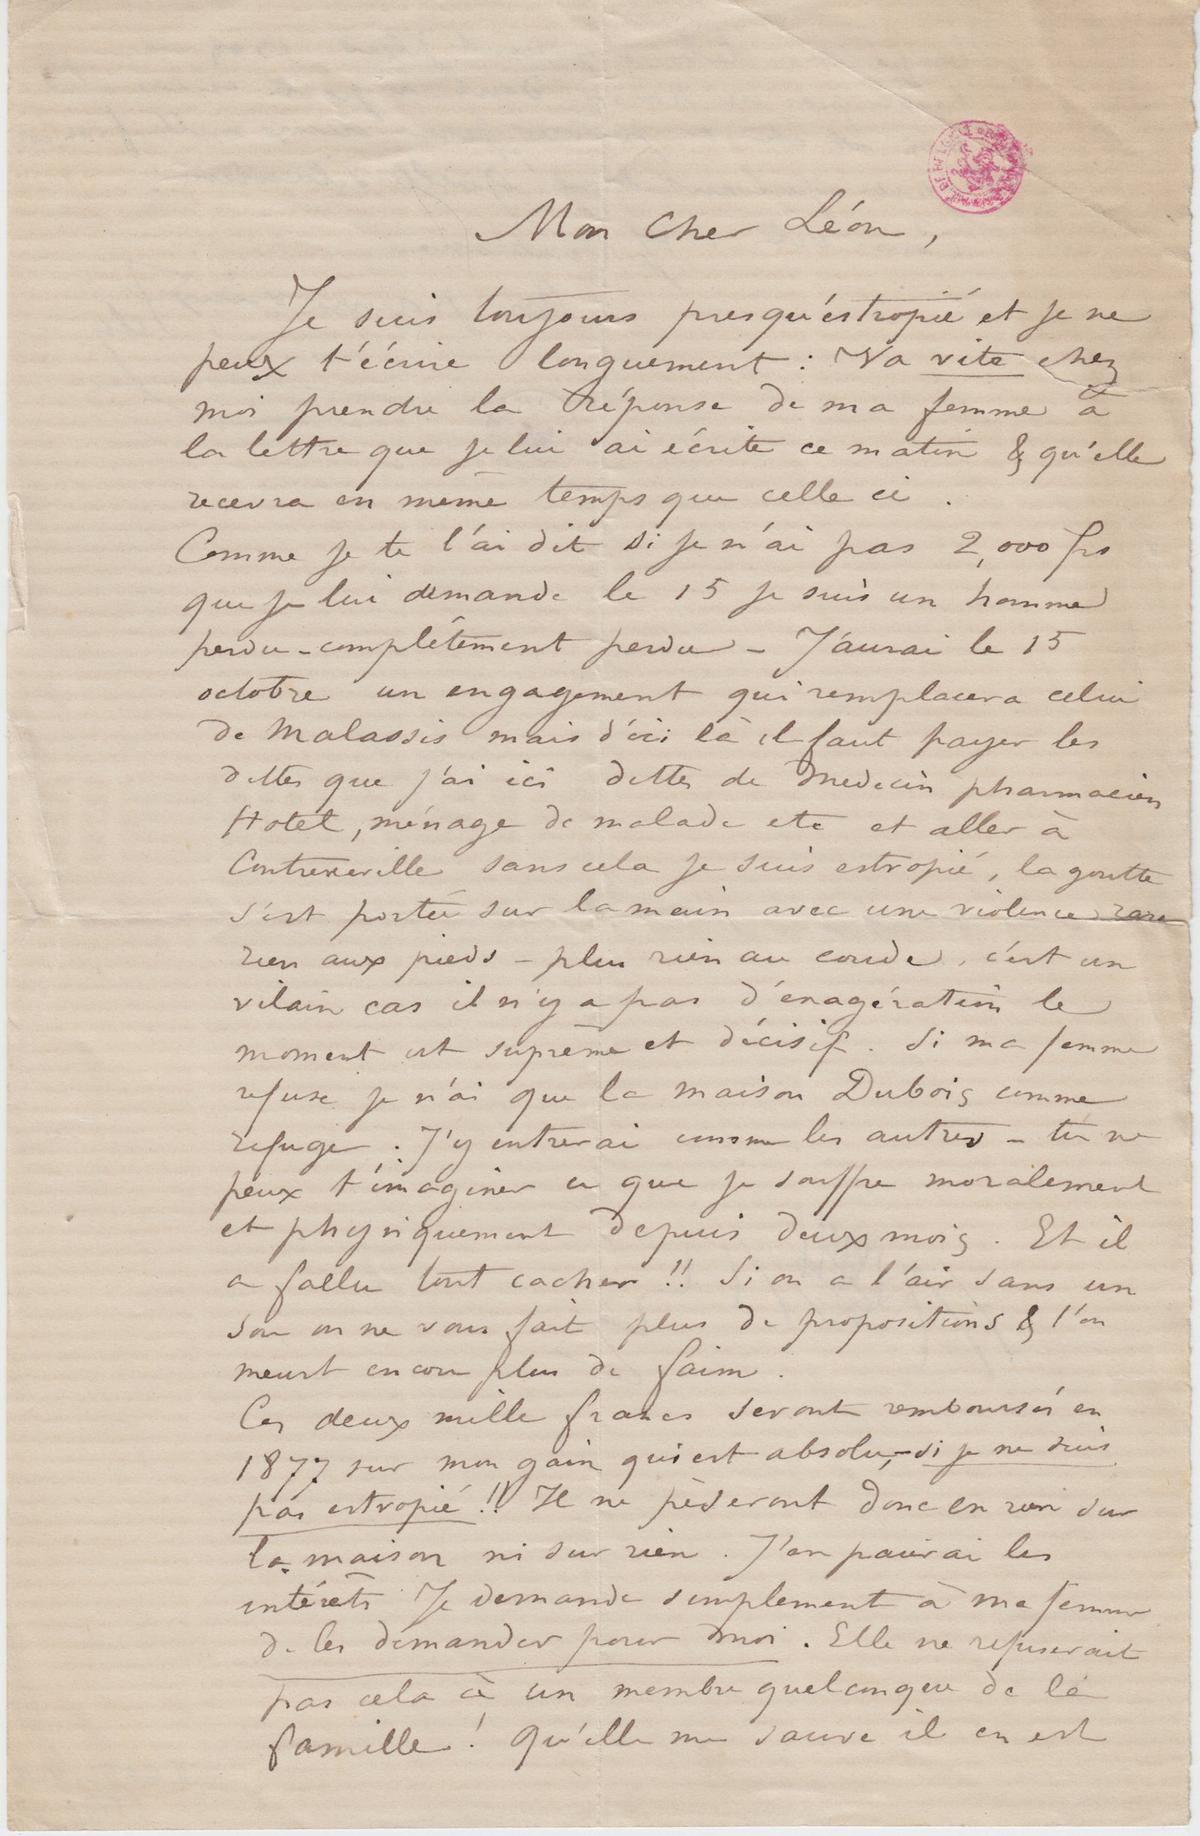 Mon cher Léon,
Je suis toujours presqu'estropié et je ne
peux t'écrire longuement : Va vite chez
moi prendre la réponse de ma femme à
la lettre que je lui ai écrite ce matin & qu'elle
recevra en même temps que celle ci.
Comme je te l'ai dit si je n'ai pas 2,000 frs
que je lui demande le 15 je suis un homme
perdu – complètement perdu – J'aurai le 15
octobre un engagement qui remplacera celui
de Malassis mais d'ici là il faut payer les
dettes que j'ai ici dettes de Médecin pharmacien
Hotel, ménage de malade etc et aller à
Contrexeville sans cela je suis estropié, la goutte
s'est portée sur la main avec une violence rare
rien aux pieds – plus rien au coude, c'est un
vilain cas il n'y a pas d'exagération le
moment est suprême et décisif. Si ma femme
refuse je n'ai que la maison Dubois comme
refuge. J'y entrerai comme les autres – tu ne
peux t'imaginer ce que je souffre moralement
et physiquement depuis deux mois. Et il
a fallu tout cacher !! Si on a l'air sans un
sou on ne vous fait plus de propositions & l'on
meurt encore plus de faim.
Ces deux mille francs seront remboursés en
1877 sur mon gain qui est absolu, – si je ne suis
pas estropié !! Il ne pèseront donc en rien sur
la maison ni sur rien. J'en paierai les
intérêts Je demande simplement à ma femme
de les demander pour moi. Elle ne refuserait
pas cela à un membre quelconque de la
famille ! Qu'elle me sauve il en est